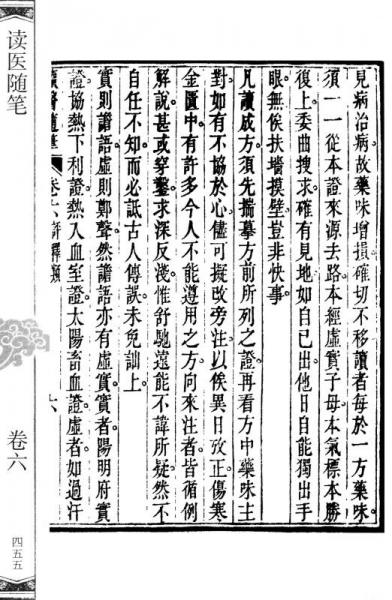 見病治病。故藥味增損確切不移。讀者每於一方藥味。
須一一從本證來源去路。本經虛實。子母本氣。標本勝
復上委曲搜求。確有見地。如自已出。他日自能獨出手
眼。無俟扶墻摸壁。豈非快事。
凡讀成方。須先揣摹方前所列之證。再看方中藥味主
對。如有不協於心。儘可擬改旁注。以俟異日攷正。傷寒
金匱中。有許多今人不能遵用之方。向來注者。皆循例
解說。甚或穿鑿。求深反淺。惟舒馳遠能不諱所疑。然不
自任不知。而必詆古人傳誤。未免訕上。
實則譫語。虛則鄭聲。然譫語亦有虛實。實者。陽明府實
證。協熱下利證。熱入血室證。太陽畜血證。虛者。如過汗
讀醫隨筆 卷六評釋類 六
读医随笔
卷六
四五五